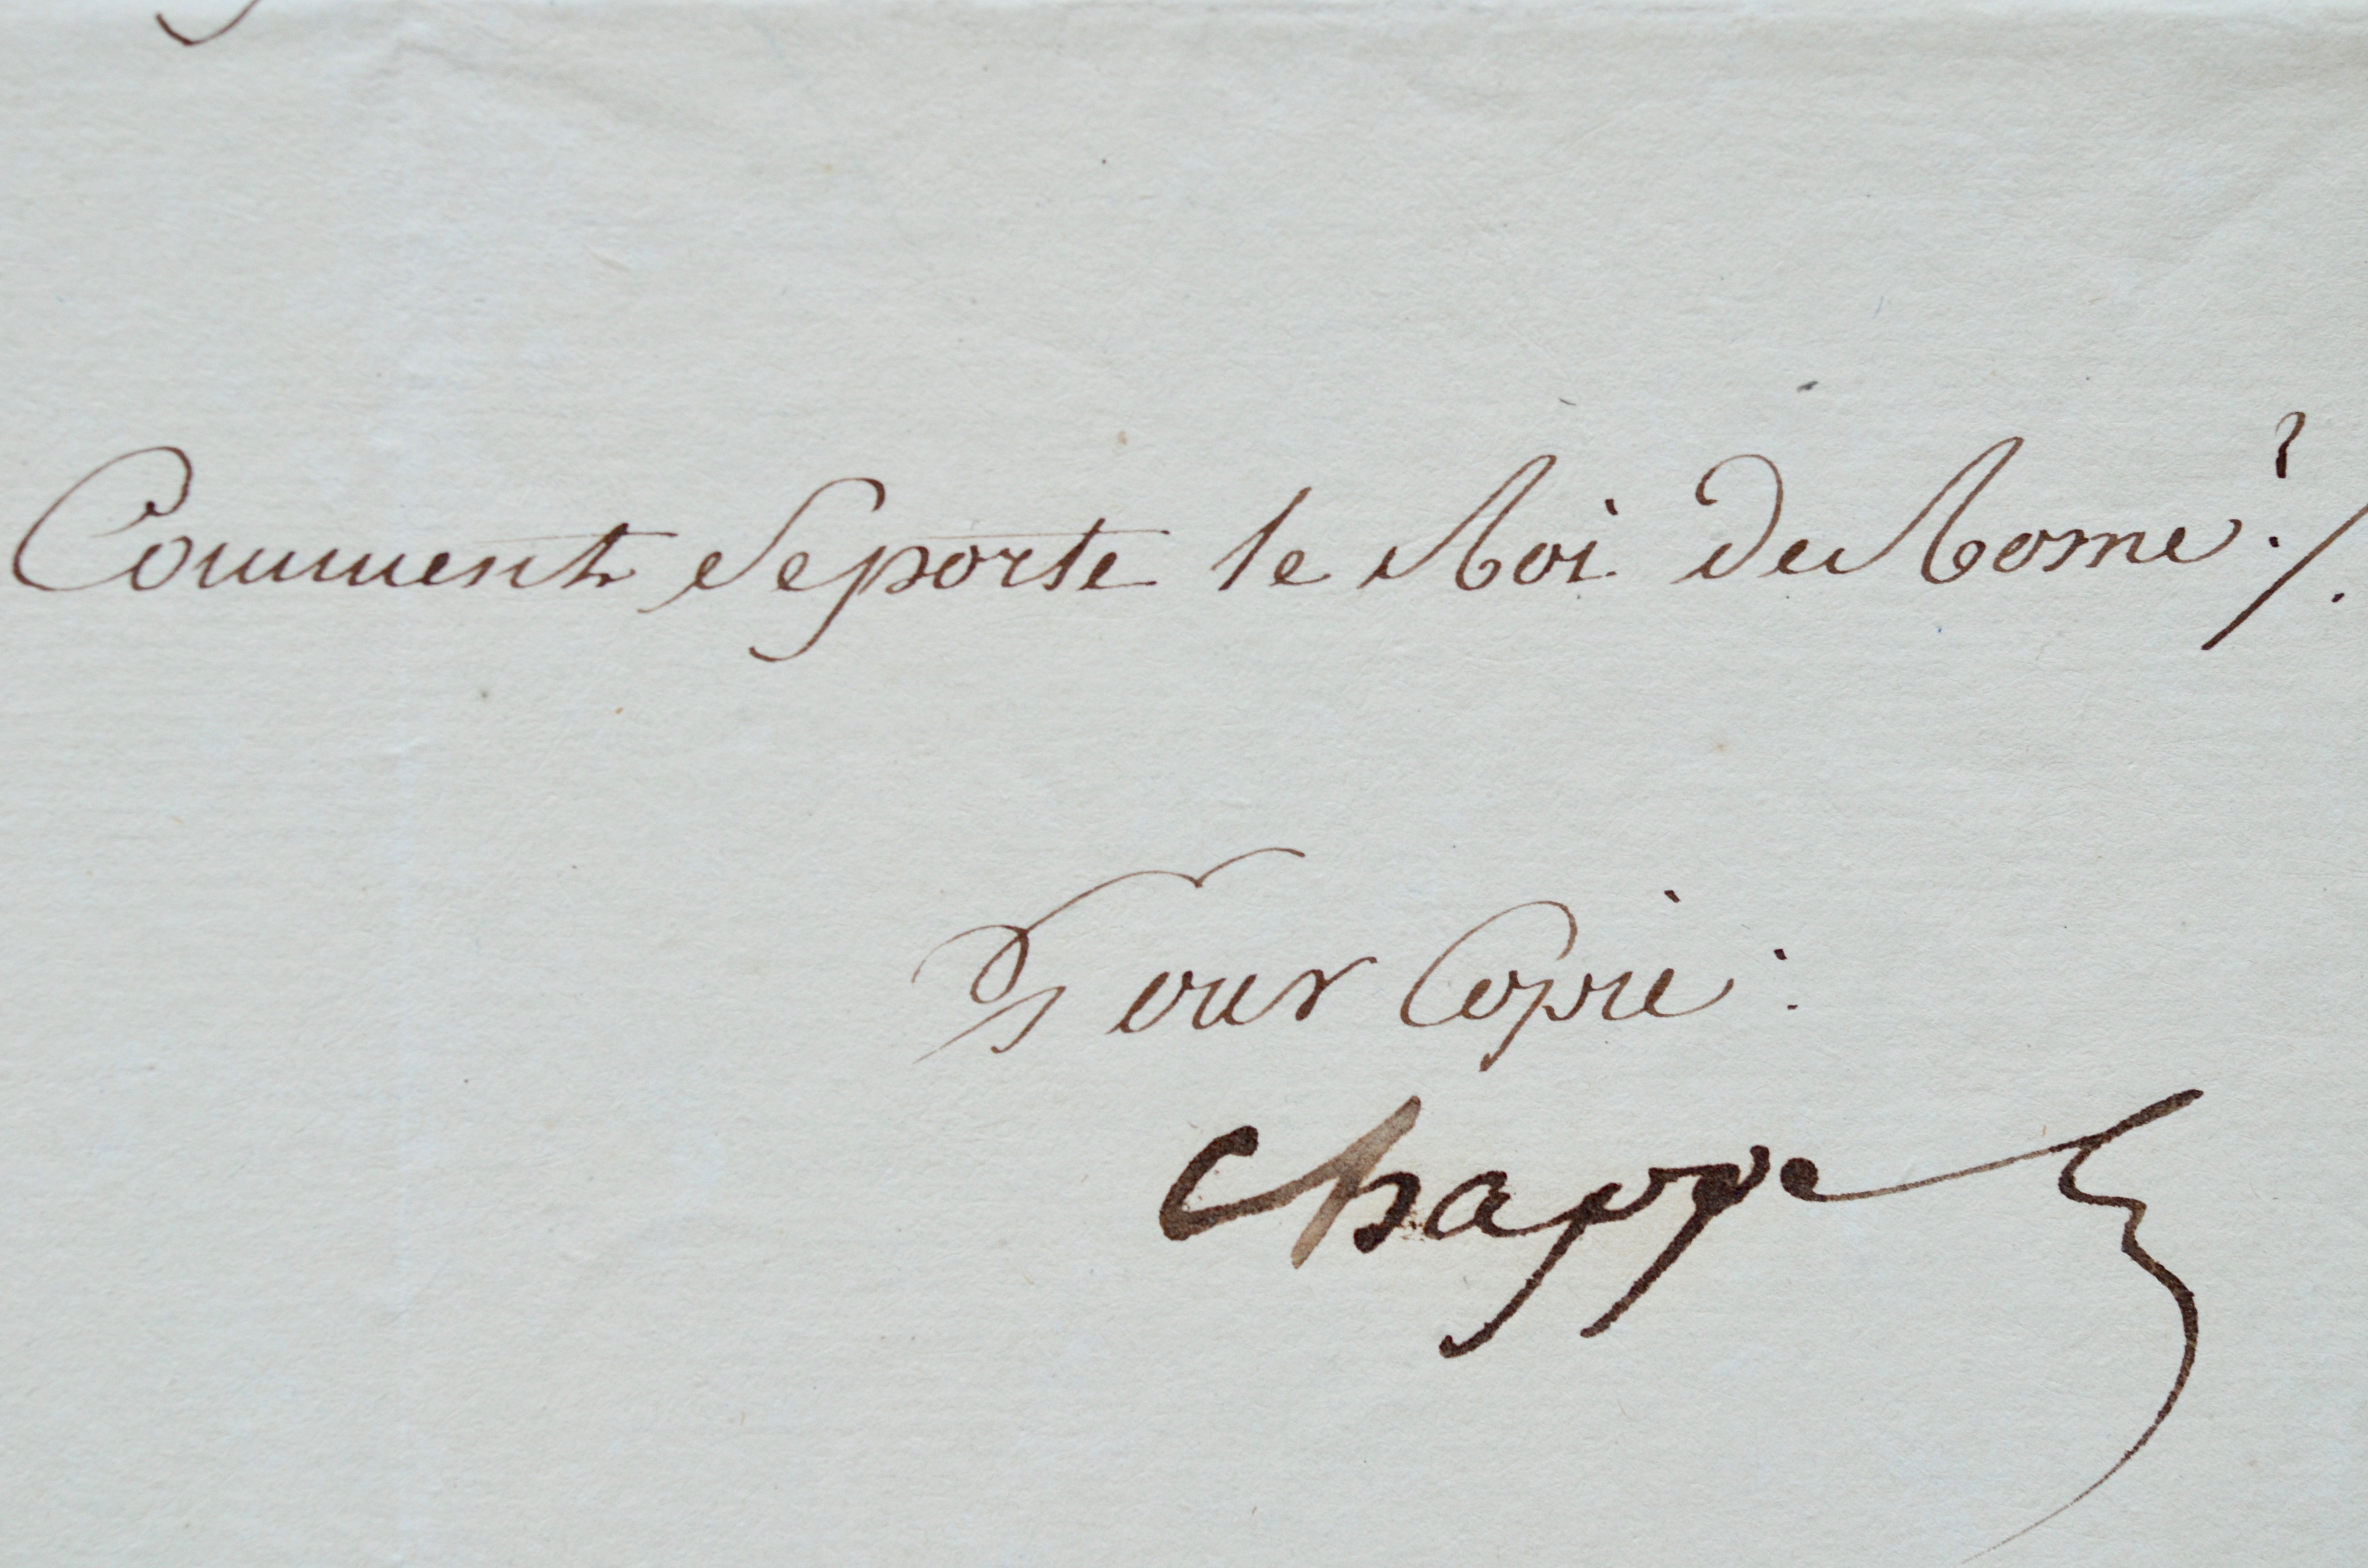 Comment Se porte le Roi de Rome ?/.
Pour Copie :
Chappe